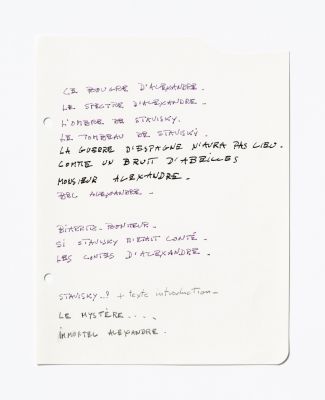 LE BOUGRE D'ALEXANDRE.
LE SPECTRE D'ALEXANDRE.
L'OMBRE DE STAVISKY.
LE TOMBEAU DE STAVISKY.
LA GUERRE D'ESPAGNE N'AURA PAS LIEU.
COMME UN BRUIT D'ABEILLES
MONSIEUR ALEXANDRE.
BEL ALEXANDRE.
BIARRITZ-BONHEUR.
SI STAVISKY M'ÉTAIT CONTÉ.
LES CONTES D'ALEXANDRE.
STAVISKY..? + texte introduction
LE MYSTÈRE....
IMMORTEL ALEXANDRE.